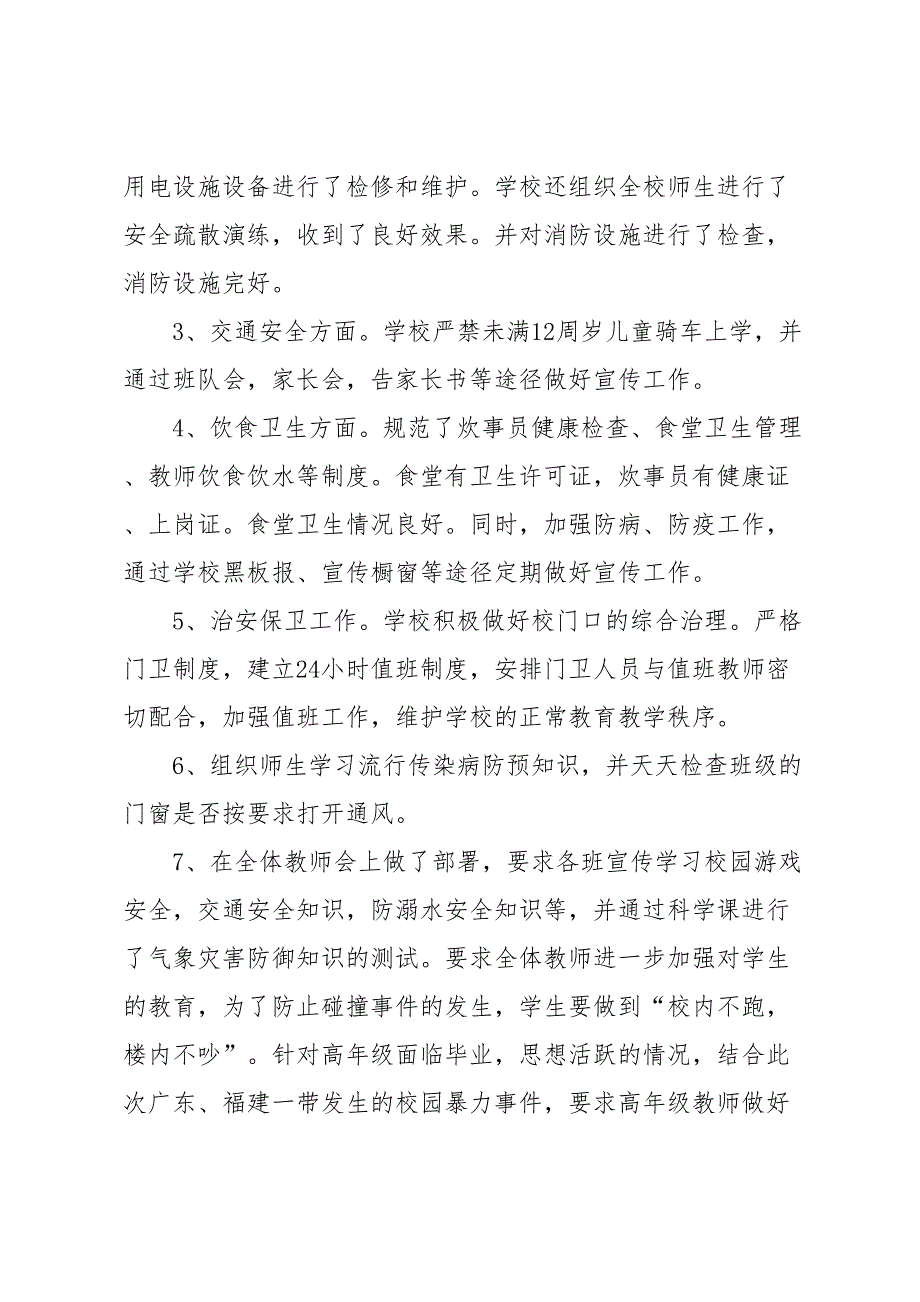 用电设施设备进行了检修和维护。学校还组织全校师生进行了
安全疏散演练，收到了良好效果。并对消防设施进行了检查，
消防设施完好。
3、交通安全方面。学校严禁未满12周岁儿童骑车上学，并
通过班队会，家长会，告家长书等途径做好宣传工作。
4、饮食卫生方面。规范了炊事员健康检查、食堂卫生管理
、教师饮食饮水等制度。食堂有卫生许可证，炊事员有健康证
、上岗证。食堂卫生情况良好。同时，加强防病、防疫工作，
通过学校黑板报、宣传橱窗等途径定期做好宣传工作。
5、治安保卫工作。学校积极做好校门口的综合治理。严格
门卫制度，建立24小时值班制度，安排门卫人员与值班教师密
切配合，加强值班工作，维护学校的正常教育教学秩序。
6、组织师生学习流行传染病防预知识，并天天检查班级的
门窗是否按要求打开通风。
7、在全体教师会上做了部署，要求各班宣传学习校园游戏
安全，交通安全知识，防溺水安全知识等，并通过科学课进行
了气象灾害防御知识的测试。要求全体教师进一步加强对学生
的教育，为了防止碰撞事件的发生，学生要做到“校内不跑，
楼内不吵”。针对高年级面临毕业，思想活跃的情况，结合此
次广东、福建一带发生的校园暴力事件，要求高年级教师做好